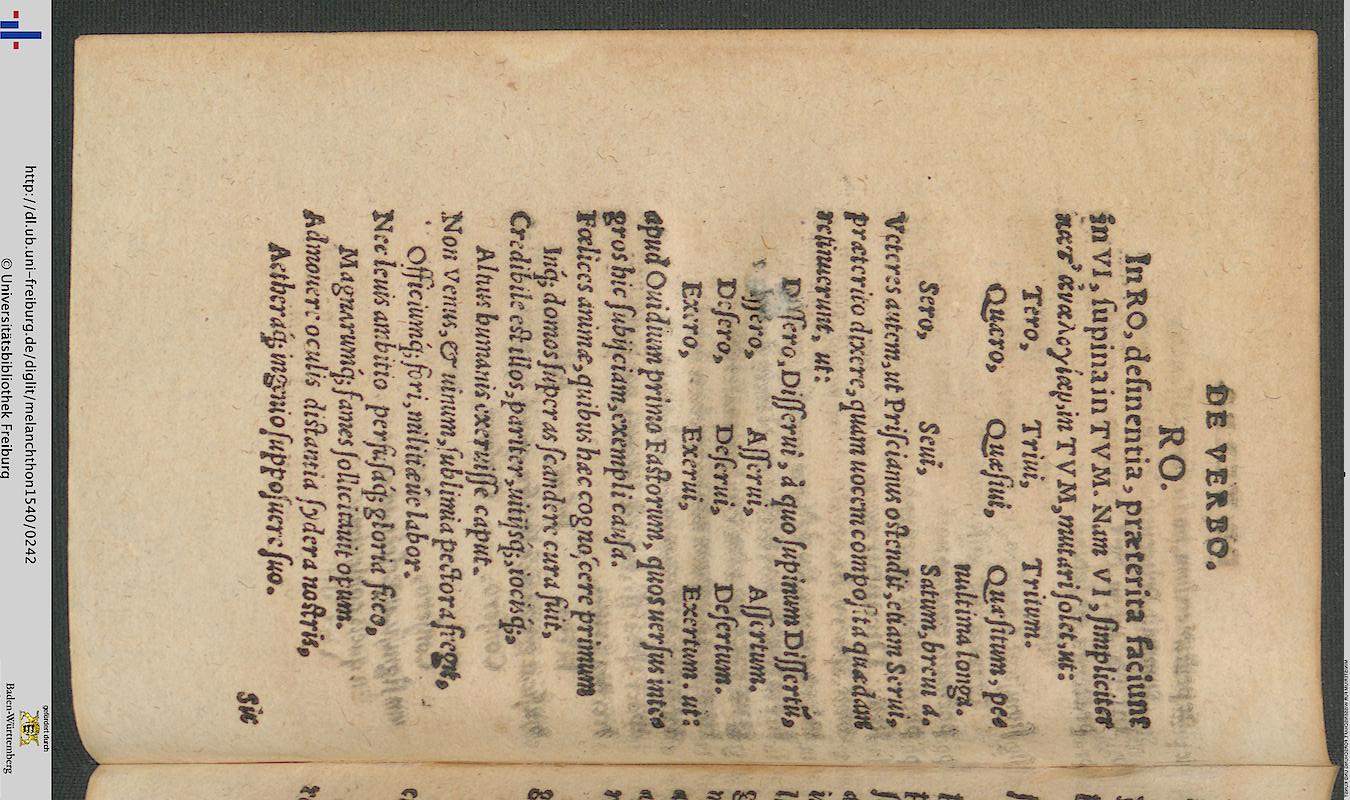 DE VERBO.
RO.
In RO, desinentia, præterita faciunt
in VI, supina in TVM. Nam VI, simpliciter
κατ' ἀναλογίαμ, in TVM, mutari solet, ut:
Tero, Triui, Tritum.
Quæro, Quæsiui, Quæsitum, pe=
nultima longa.
Sero, Seui, Satum, breui a.
Veteres autem, ut Priscianus ostendit, etiam Serui,
præterito dixere, quam uocem composita quædam
retinuerunt, ut:
Dissero, Disserui, à quo supinum Dissertũ,
Assero, Asserui, Assertum.
Desero, Deserui, Desertum.
Exero, Exerui, Exertum. ut:
apud Ouidium primo Fastorum, quos uersus inte=
gros hic subijciam, exempli causa.
Fœlices animæ, quibus hæc cognoscere primum
Inq; domos superas scandere cura fuit,
Credibile est illos, pariter, uitijsq;, iocisq;,
Altius humanis exeruisse caput.
Non Venus, & uinum, sublimia pectora fregit,
Officiumq; fori, militiæue labor.
Nec leuis ambitio perfusaq; gloria fuco,
Magnarumq; fames sollicitauit opum.
Admouere oculis distantia sydera nostris,
Aetheraq; ingenio supposuere suo.
Sic
http://dl.ub.uni-freiburg.de/diglit/melanchthon1540/0242
© Universitätsbibliothek Freiburg
gefördert durch
Baden-Württemberg